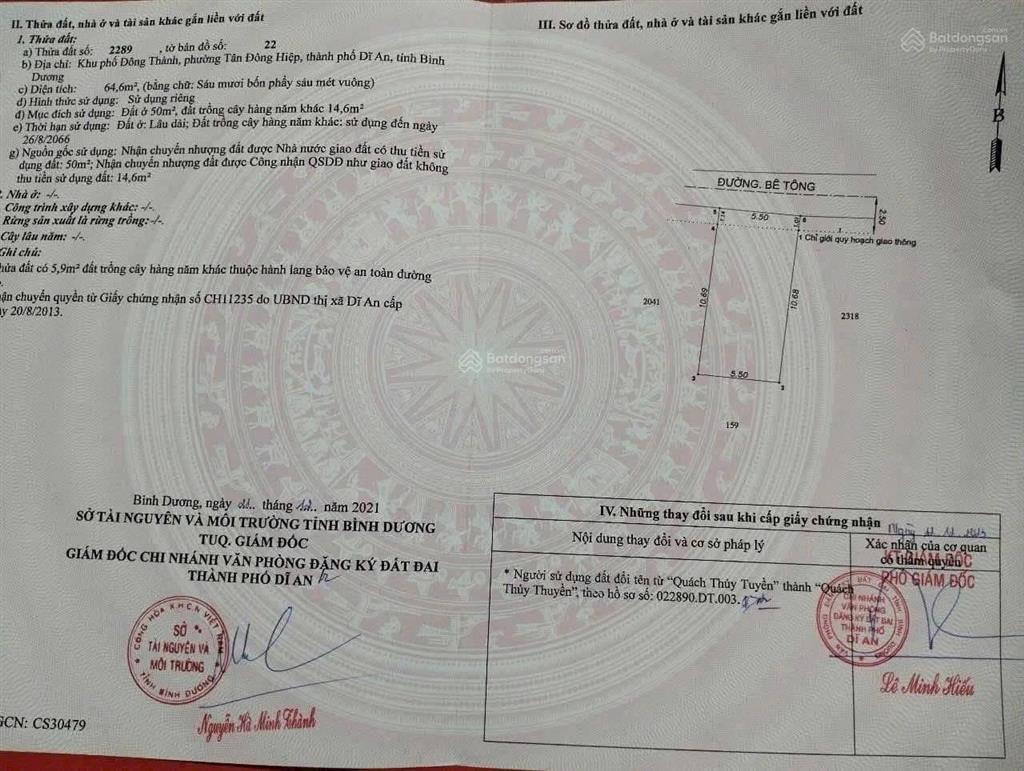 II. Thửa đất, nhà ở và tài sản khác gắn liền với đất
1. Thửa đất:
a) Thửa đất số: 2289 , tờ bản đồ số: 22
b) Địa chỉ: Khu phố Đông Thành, phường Tân Đông Hiệp, thành phố Dĩ An, tỉnh Bình
Dương
c) Diện tích: 64,6m², (bằng chữ: Sáu mươi bốn phẩy sáu mét vuông)
d) Hình thức sử dụng: Sử dụng riêng
đ) Mục đích sử dụng: Đất ở 50m², đất trồng cây hàng năm khác 14,6m²
e) Thời hạn sử dụng: Đất ở: Lâu dài; Đất trồng cây hàng năm khác: sử dụng đến ngày
26/8/2066
g) Nguồn gốc sử dụng: Nhận chuyển nhượng đất được Nhà nước giao đất có thu tiền sử
dụng đất: 50m²; Nhận chuyển nhượng đất được Công nhận QSDĐ như giao đất không
thu tiền sử dụng đất: 14,6m²
. Nhà ở: -/-.
Công trình xây dựng khác: -/-.
Rừng sản xuất là rừng trồng: -/-.
Cây lâu năm: -/-.
Ghi chú:
hửa đất có 5,9m² đất trồng cây hàng năm khác thuộc hành lang bảo vệ an toàn đường
ận chuyển quyền từ Giấy chứng nhận số CH11235 do UBND thị xã Dĩ An cấp
y 20/8/2013.
Bình Dương, ngày tháng năm 2021
SỞ TÀI NGUYÊN VÀ MÔI TRƯỜNG TỈNH BÌNH DƯƠNG
TUQ. GIÁM ĐỐC
GIÁM ĐỐC CHI NHÁNH VĂN PHÒNG ĐĂNG KÝ ĐẤT ĐAI
THÀNH PHỐ DĨ AN
CỘNG HÒA X.H.C.N VIỆT NAM
SỞ
TÀI NGUYÊN VÀ
MÔI TRƯỜNG
TỈNH BÌNH DƯƠNG
Nguyễn Hà Minh Thành
GCN: CS30479
III. Sơ đồ thửa đất, nhà ở và tài sản khác gắn liền với đất
Batdongsan
by PropertyGuru
B
ĐƯỜNG BÊ TÔNG
2.50
5.50
1 Chỉ giới quy hoạch giao thông
2041
10.69
10.68
2318
5.50
159
Batdongsan
by PropertyGuru
IV. Những thay đổi sau khi cấp giấy chứng nhận
Nội dung thay đổi và cơ sở pháp lý
Xác nhận của cơ quan
có thẩm quyền
* Người sử dụng đất đổi tên từ “Quách Thúy Tuyền” thành “Quách
Thúy Thuyền”, theo hồ sơ số: 022890.DT.003.
KT.GIÁM ĐỐC
PHÓ GIÁM ĐỐC
CHI NHÁNH
VĂN PHÒNG
ĐĂNG KÝ ĐẤT ĐAI
THÀNH PHỐ
DĨ AN
Lê Minh Hiếu